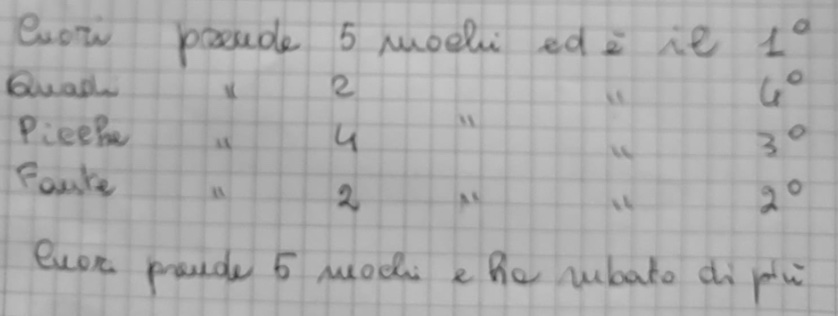 Cuori prende 5 mochi ed è il 1°
Quadri " 2 " " 4°
Picche " 4 " 3°
Fante " 2 " " 2°
Cuori prende 5 mochi e ha rubato di più